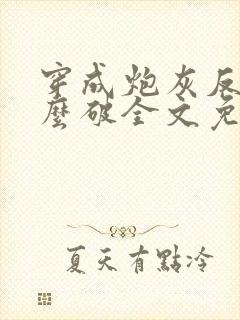 穿成炮灰反
麼破全文免
夏天有點冷